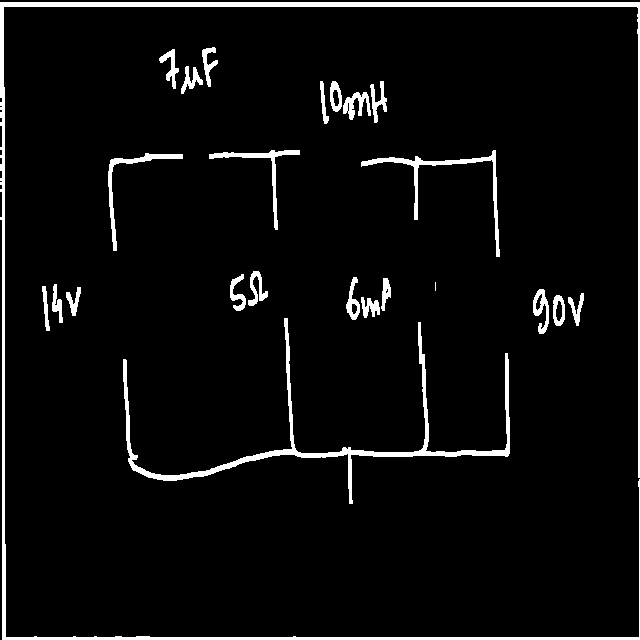 7µF
10mH
14V
5Ω
6mA
90V